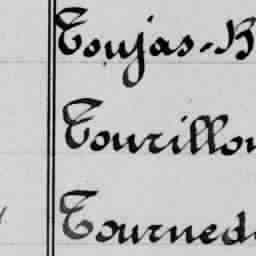 Toujas-B
Tourillou
Tourned